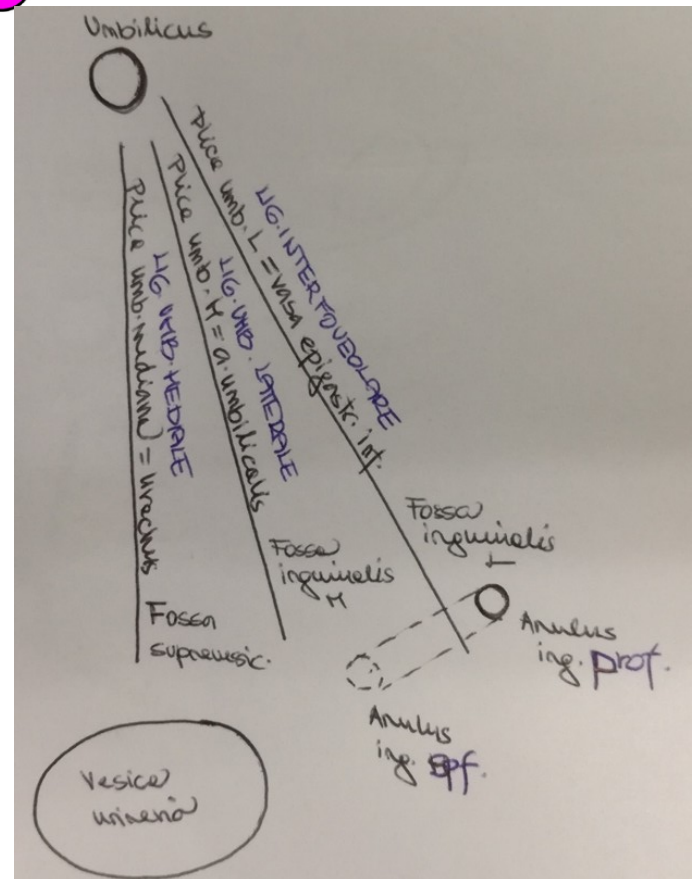 Umbilicus
Plica umb. mediana = urachus
LIG. UMB. MEDIALE
Plica umb. M = a. umbilicalis
LIG. UMB. LATERALE
Plica umb. L = vasa epigastr. inf.
LIG. INTERFOVEOLARE
Fossa
supravesic.
Fossa
inguinalis
M
Fossa
inguinalis
L
Anulus
ing. prof.
Anulus
ing. spf.
Vesica
urinaria